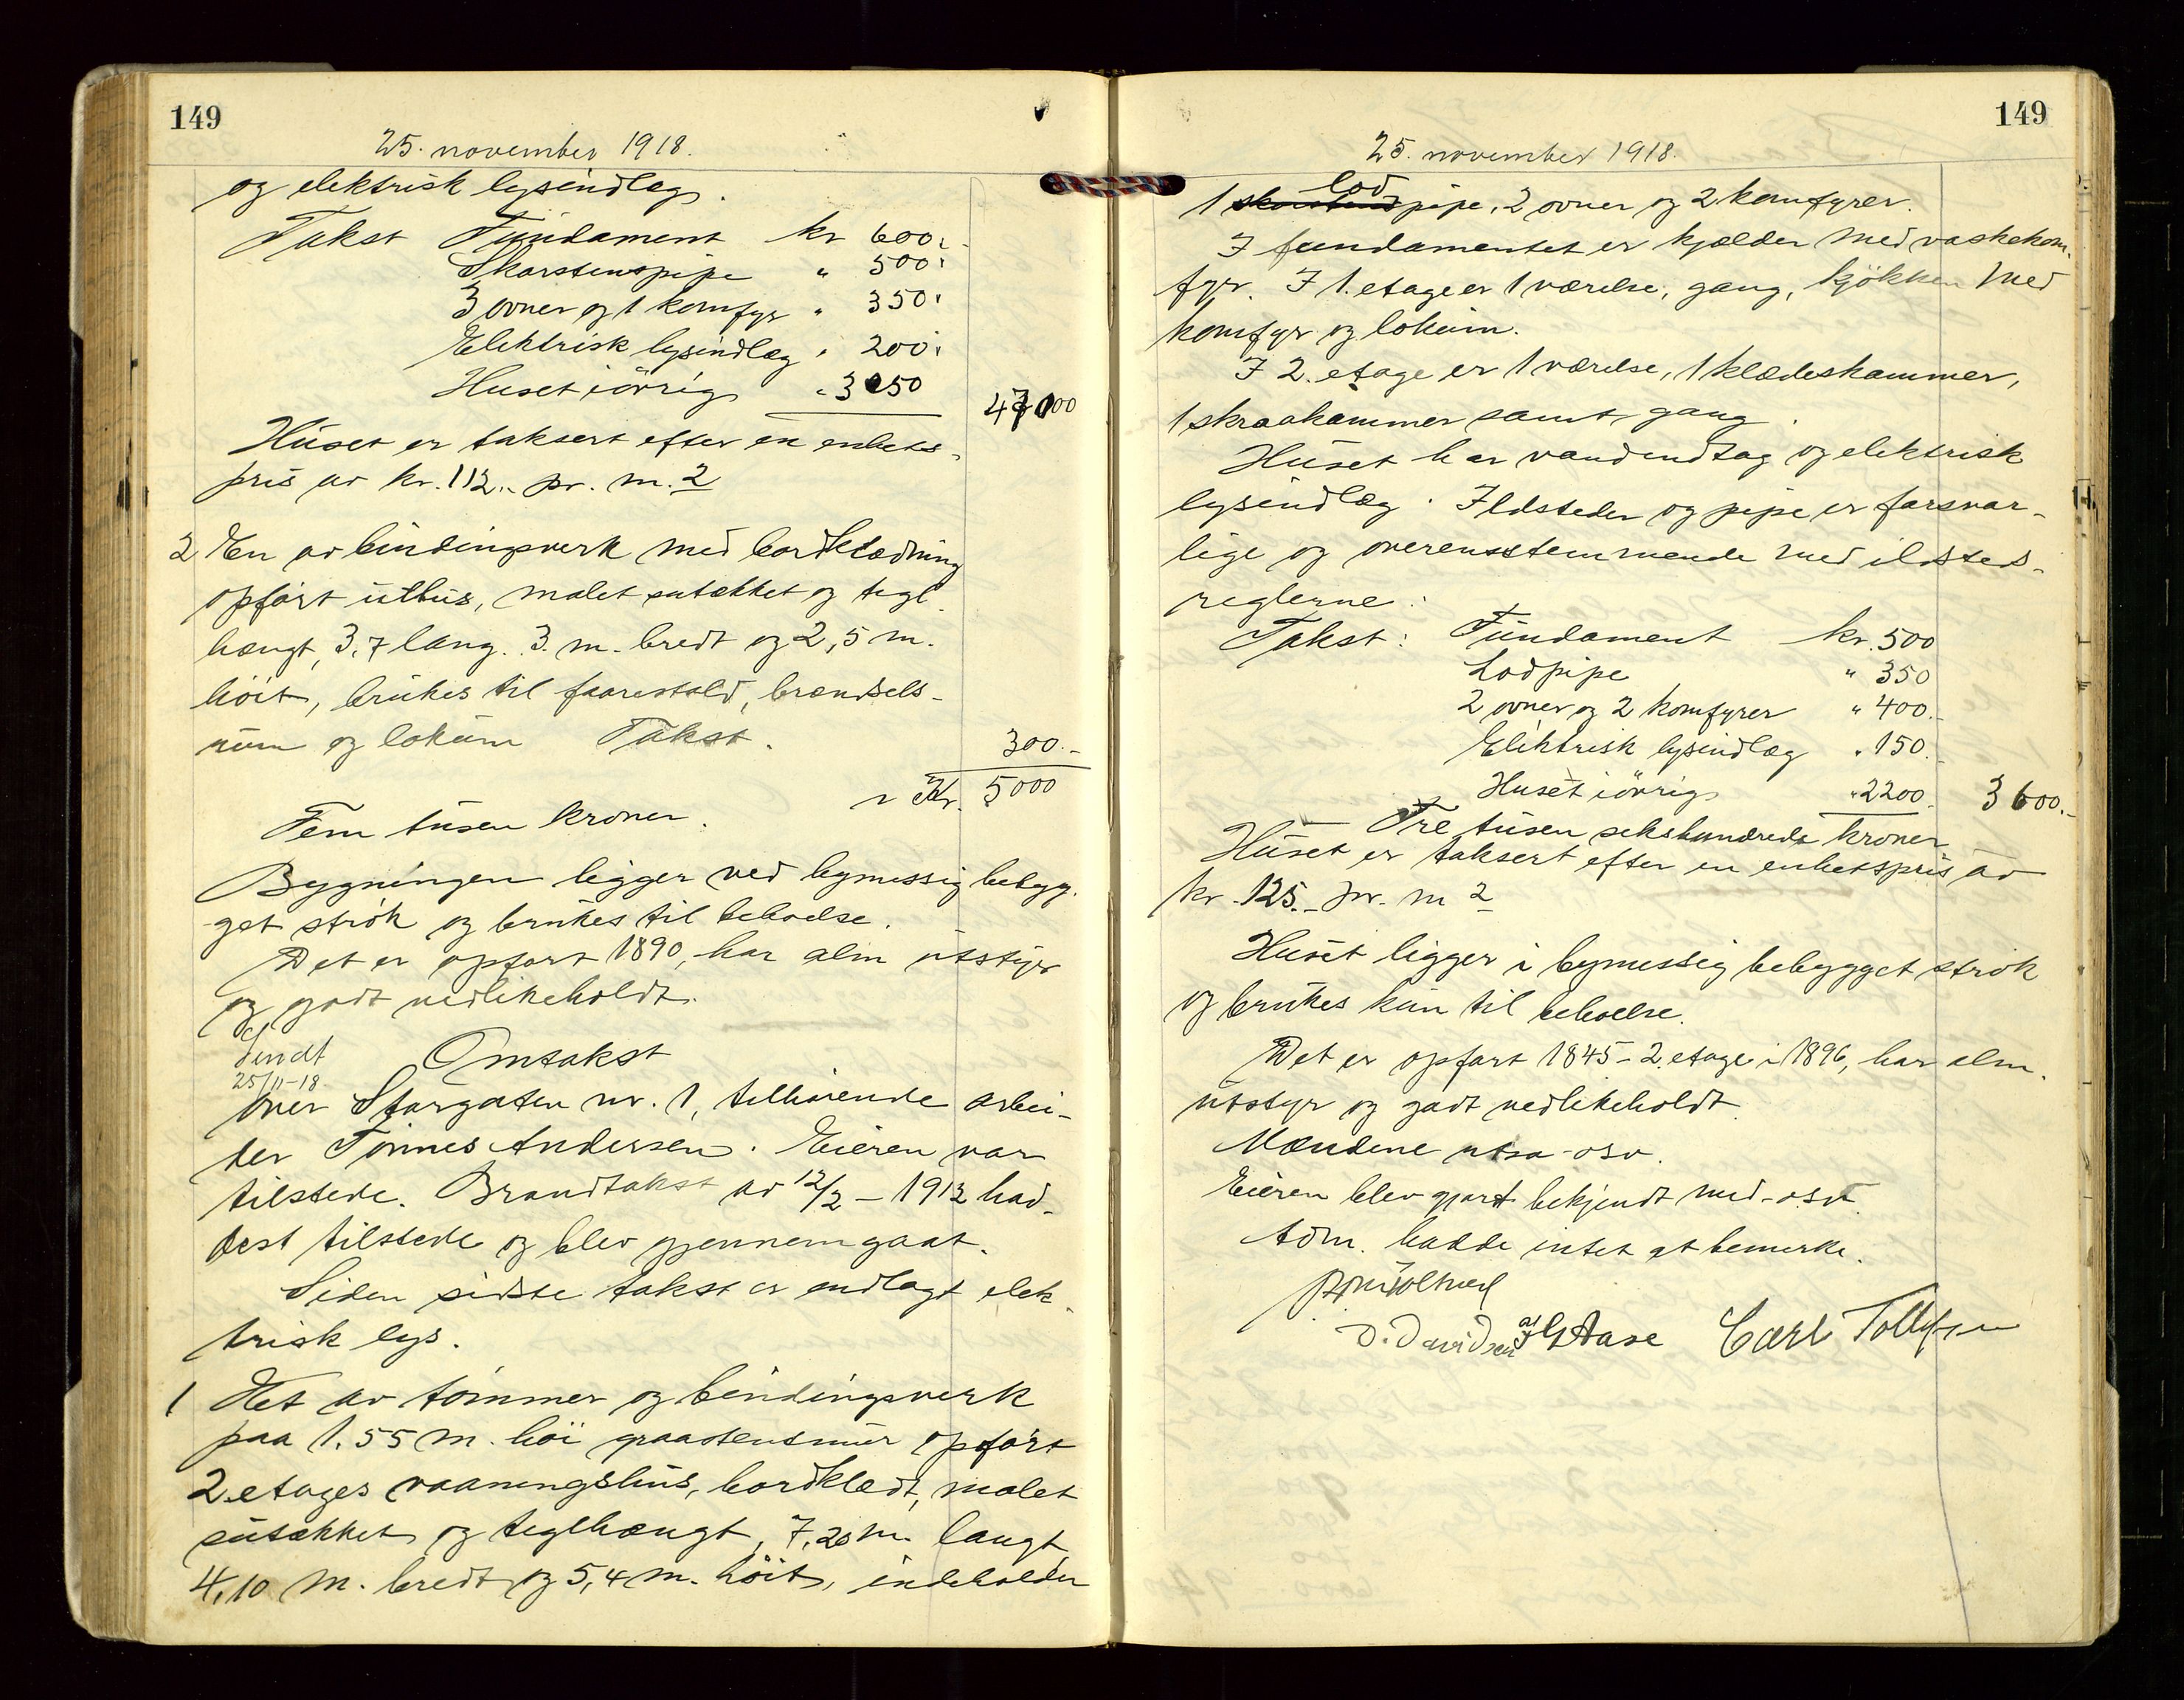 149
25. november 1918.
og elektrisk lysindlæg.
Takst Fundament kr 600.-
Skorstenspipe " 500.
3 ovner og 1 komfyr " 350.
Elektrisk lysindlæg " 200.
Huset iövrig " 3050 4700
Huset er taksert efter en enhets-
pris av kr. 112.- pr. m.2
2 En av bindingsverk med bordklædning
opført uthus, malet sutækket og tegl-
hængt, 3,7 lang. 3. m. bredt og 2,5 m.
höit, brukes til faarestald, brændsels-
rum og lokum Takst. 300.-
Kr. 5000
Fem tusen kroner.
Bygningen ligger ved bymessig bebyg-
get strök og brukes til beboelse.
Det er opfört 1890, har alm utstyr
og godt vedlikeholdt.
Sendt
25/11-18. Omtakst
over Storgaten nr. 1, tilhörende arbei-
der Tönnes Andersen. Eieren var
tilstede. Brandtakst av 12/2 - 1912 had-
dest tilstede og blev gjennemgaat.
Siden sidste takst er indlagt elek-
trisk lys.
1 Et av tömmer og bindingsverk
paa 1.55 m. höi graastensmur opfört
2. etages vaaningshus, bordklædt, malet
sutækket og teglhængt, 7,20 m. langt
4,10 m. bredt og 5,4 m. höit, indeholder
149
25. november 1918.
lod
1 pipe, 2 ovner og 2 komfyrer.
I fundamentet er kjælder med vaskekom-
fyr. I 1. etage er 1 værelse, gang, kjökken med
komfyr og lokum.
I 2. etage er 1 værelse, 1 klædeskammer,
1 skraakammer samt gang.
Huset har vandindtag og elektrisk
lysindlæg. Ildsteder og pipe er forsvar-
lige og overensstemmende med ildsteds-
reglerne.
Takst: Fundament kr. 500
Lodpipe " 350
2 ovner og 2 komfyrer " 400.-
Elektrisk lysindlæg " 150.-
Huset iövrig " 2200.- 3600.-
Tre tusen sekshundrede kroner
Huset er taksert efter en enhetspris av
kr. 125.- pr. m 2
Huset ligger i bymessig bebygget strök
og brukes kun til beboelse.
Det er opfört 1845 - 2. etage i 1896, har alm.
utstyr og godt vedlikeholdt.
Mændene utsa - osv.
Eieren blev gjort bekjendt med - osv.
Adm. hadde intet at bemerke.
D. Davidsen G Aase Carl Tollefsen